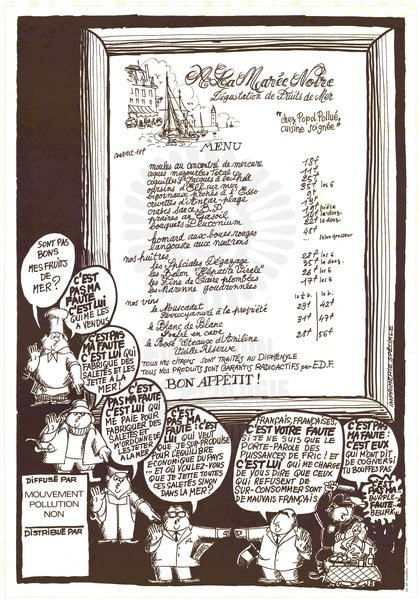 A La Marée Noire
Dégustation de Fruits de Mer
"chez Popol Pollué,
cuisine soignée"
MENU
couvert 10f
moules au concentré de mercure 18f
coques mazoutées Total 11f
coquilles St Jacques à l'
oursins d'Elf sur mer 35f les 6
bigorneaux pochés à l'Esso 9f
crevilles d'Antar-plage 19f
crabes sauce B.P. 18f pièce
praires au Gasoil 14f la douz.
bouquets Plutonium la douz.
homard aux boues rouges 48f
langouste aux neutrons selon grosseur
nos huîtres
les Spéciales Dégazage 28f les 6
les Belon "Hépatite Virale" 35f les 6
les Fine de Claire plombées 26f les 6
les Marenne goudronnées 17f les 6
nos vins ½ b. b.
le Muscadet 29f 42f
Ferrocyanuré à la propriété
le Blanc de Blanc 31f 47f
Foutré en cave
le Rosé "Coteaux d'Aniline 28f 56f
Vieille Réserve
TOUS NOS CITRONS SONT TRAITÉS AU DIPHÉNYLE
TOUS NOS PRODUITS SONT GARANTIS RADIOACTIFS par E.D.F.
BON APPÉTIT !
SONT PAS
BONS
MES FRUITS
DE
MER ?
C'EST
PAS MA
FAUTE
C'EST LUI
QUI ME LES
A VENDUS
C'EST PAS
MA FAUTE
C'EST LUI QUI
FABRIQUE DES
SALETÉS ET LES
JETTE À LA
MER
C'EST
PAS MA FAUTE
C'EST LUI QUI
ME PAIE POUR
FABRIQUER DES
SALETÉS ET
M'ORDONNE DE
LES JETER
À LA MER
C'EST
PAS MA
FAUTE :
C'EST
LUI QUI VEUT
QUE JE SUR-PRODUISE
POUR L'ÉQUILIBRE
ÉCONOMIQUE DU PAYS
... ET OÙ VOULEZ-VOUS
QUE JE JETTE TOUTES
CES SALETÉS SINON
DANS LA MER ?
FRANÇAIS, FRANÇAISES,
C'EST VOTRE FAUTE
SI JE NE SUIS QUE LE
PORTE-PAROLE DES
PUISSANCES DE FRIC ! ET
C'EST LUI QUI ME CHARGE
DE VOUS DIRE QUE CEUX
QUI REFUSENT DE
SUR-CONSOMMER SONT
DE MAUVAIS FRANÇAIS
C'EST PAS
MA FAUTE :
C'EST LUI
QUI M'DIT
DE COGNER SI
TU BOUFFES PAS
C'EST
PAS MA
BURPLE
FAUTE
BEURK...
DIFFUSÉ PAR
MOUVEMENT
POLLUTION
NON
DISTRIBUÉ PAR